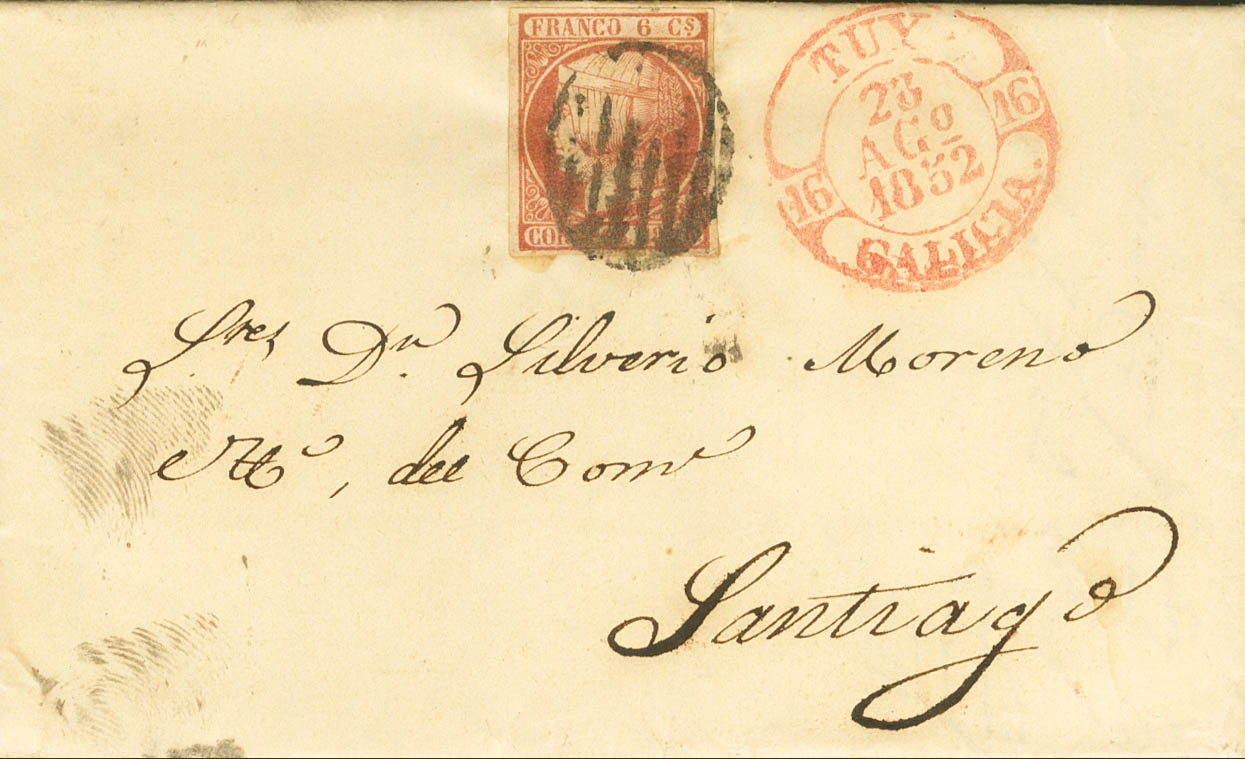 FRANCO 6 Cs
TUY
16
23
AGo
1852
16
GALICIA.
Sres Dn Silverio Moreno
del Como
Santiago